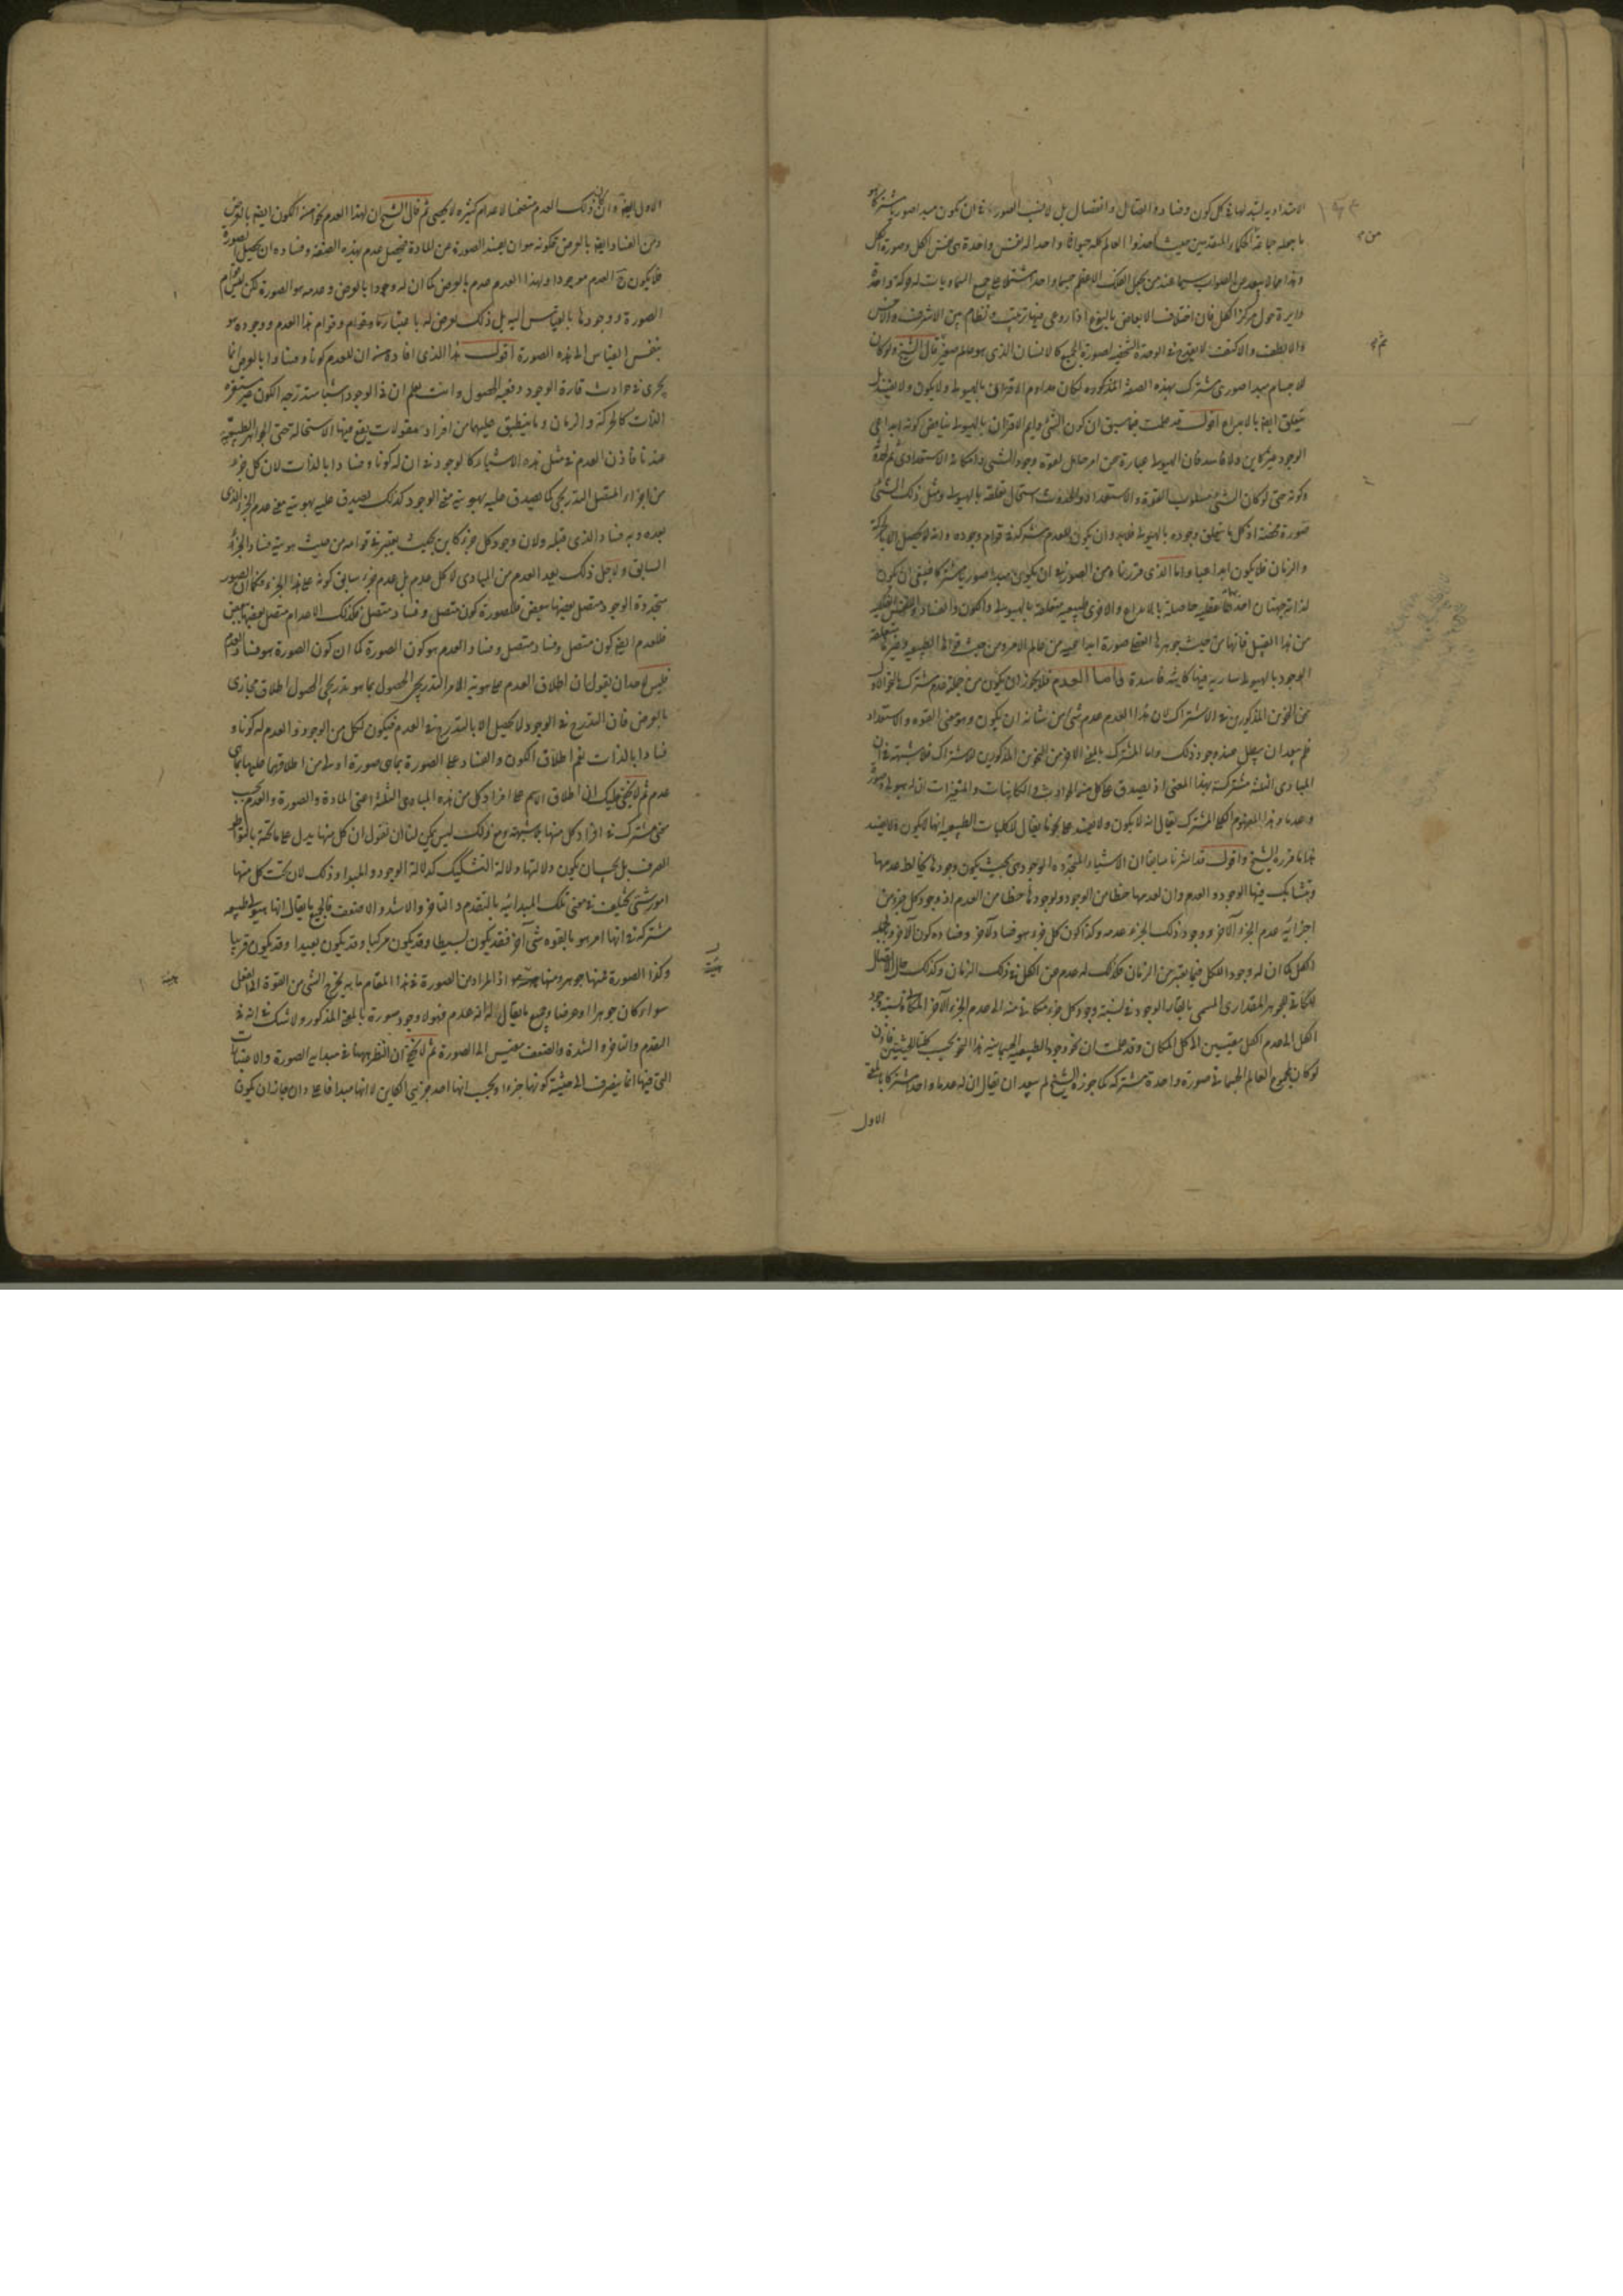 الامتدادية لتبدلها في كل كون وفساد واتصال وانفصال بل لا نسب الصور في ان يكون مبدا صوريا مشتركا هو
ما جعله جماعة الحكماء المتقدمين حيث اخذوا العالم كله حيوانا واحدا له نفس واحدة هي نفس الكل وصورة الكل
وهذا مما لا يبعد من الصواب سيما عند من يجعل الفلك الاعظم جسما واحدا مشتملا على جميع السماويات له حركة واحدة
دايرة حول مركز الكل فان اختلاف الابعاض بالنوع اذا روعي فيها ترتيب ونظام بين الاشرف والاخس
والالطف والاكثف لا يقدح في الوحدة الشخصية لصورة الجميع كالانسان الذي هو عالم صغير قال الشيخ ولو كان
للاجسام مبدا صوري مشترك بهذه الصفة المذكورة لكان مداوم الاقتران بالهيولى ولا يكون ولا يفسد بل
يتعلق ايضا بالابداع اقول قد علمت فيما سبق ان كون الشي دايم الاقتران بالهيولى يناقض كونه ابداعي
الوجود غير كاين ولا فاسد فان الهيولى عبارة عن امر حامل لقوة وجود الشي وامكانه الاستعدادي
وكونه حتى لو كان الشي مسلوب القوة والاستعداد والحدوث استحال تعلقه بالهيولى ومثل ذلك الشي
صورة محضة اذ كل ما يتعلق وجوده بالهيولى فلا بد وان يكون للعدم شركة في قوام وجوده ولانه لا يحصل الا بالحركة
والزمان فلا يكون ابداعيا واما الذي قررناه من الصورة ان يكون مبدا صوريا مشتركا فينبغي ان يكون
لذاته جهتان احدهما عقلية حاصلة بالابداع والاخرى طبيعية متعلقة بالهيولى والكون والفساد والنفس الفلكية
من هذا القبيل فانها من حيث جوهرها العقلي صورة ابداعية من عالم الامر ومن حيث قواها الطبيعية وغيرها متعلقة
الوجود بالهيولى سارية فيها كاينة فاسدة فاما العدم فلا يجوز ان يكون من جملة عدم مشترك بالنحو الاول
من النحوين المذكورين في الاشتراك لان هذا العدم عدم شي من شانه ان يكون وهو معنى القوة والاستعداد
فلم يبعد ان يبطل عند وجود ذلك واما المشترك بالنحو الاخر من النحوين المذكورين للاشتراك فلا شبهة في ان
المبادي الثلثة مشتركة بهذا المعنى اذ يصدق على كل من الحوادث والكاينات والمتغيرات ان له هيولى وصورة
وعدما وهذا المفهوم الكلي المشترك يقال انه لا يكون ولا يفسد على نحو ما يقال للكليات الطبيعية انها لا يكون ولا يفسد
هذا ما قرره الشيخ واقول قد اشرنا سابقا ان الاشياء المتجددة الوجود هي بحيث يكون وجودها يخالط عدمها
وتشابك فيها الوجود والعدم وان لعدمها حظا من الوجود ولوجودها حظا من العدم اذ وجود كل جزء من
اجزائه عدم الجزء الاخر ووجود ذلك الجزء عدمه وكذا كون كل جزء هو فساد لاخر وفساده كون لاخر وبالجملة
الكل كما ان له وجود الكل فيما يعتبر من الزمان فكذلك له عدم عن الكل في ذلك الزمان وكذلك حال الاتصال
للكاينة الجوهر المقداري المسمى بالقار الوجود في نسبة وجود كل جزء مكاني منه الى عدم الجزء الاخر المكاني ونسبة وجود
الكل الى عدم الكل مقيسين الى كل المكان وقد علمت ان نحو وجود الطبيعة الجسمانية هذا النحو بحسب كلتا الحيثيتين فاذن
لو كان لجميع العالم الجسماني صورة واحدة مشتركة كما جوزه الشيخ لم يبعد ان يقال ان له عدما واحدا مشتركا بالمعنى
الاول
الاول ايضا وان كان ذلك العدم متضمنا لاعدام كثيرة لا يحصى ثم قال الشيخ ان لهذا العدم نحوا من الكون ايضا بالعرض
ومن الفساد ايضا بالعرض فكونه هو ان يفسد الصورة عن المادة فيحصل عدم بهذه الصفة وفساده ان يحصل الصورة
فلا يكون ح العدم موجودا ولهذا العدم عدم بالعرض كما ان له وجودا بالعرض وعدمه هو الصورة لكن ليس قوام
الصورة ووجودها بالقياس اليه بل ذلك يعرض له باعتبار ما وقوام هذا العدم ووجوده هو
بنفس القياس الى هذه الصورة اقول هذا الذي افاده من ان للعدم كونا وفسادا بالعرض انما
يجري في حوادث قارة الوجود دفعية الحصول وانت تعلم ان في الوجود اشياء متدرجة الكون غير مستقرة
الذات كالحركة والزمان وما ينطبق عليهما من افراد مقولات يقع فيها الاستحالة حتى الجواهر الطبيعية
عندنا فاذن العدم في مثل هذه الاشياء كالوجود في ان له كونا وفسادا بالذات لان كل جزء
من اجزاء المتصل التدريجي كما يصدق عليه بهويته معنى الوجود كذلك يصدق عليه بهويته معنى عدم الجزء الذي
بعده وبه فساد الذي قبله ولان وجود كل جزء كاين بحيث يعتبر في قوامه من حيث هويته فساد الجزء
السابق ولاجل ذلك يعد العدم من المبادي لا كل عدم بل عدم جزء سابق كونه على هذا الجزء فكما ان الصور
متجددة الوجود متصل بعضها ببعض فللصورة كون متصل وفساد متصل فكذلك الاعدام متصل بعضها ببعض
فللعدم ايضا كون متصل وفساد متصل وفساد العدم هو كون الصورة كما ان كون الصورة هو فساد العدم
فليس لاحد ان يقول ان اطلاق العدم على هوية الامر التدريجي الحصول بما هو تدريجي الحصول اطلاق مجازي
بالعرض فان التدرج في الوجود لا يحصل الا بالتدرج في العدم فيكون لكل من الوجود والعدم له كونا و
فسادا بالذات نعم اطلاق الكون والفساد على الصورة بما هي صورة اولى من اطلاقهما عليها بما هي
عدم ثم لا يخفى عليك ان اطلاق الاسم على افراد كل من هذه المبادي الثلثة اعني المادة والصورة والعدم بحسب
معنى مشترك في افراد كل منها بلا شبهة ومع ذلك ليس يمكن لنا ان نقول ان كل منها يدل على ما تحته بالتواطؤ
الصرف بل يجب ان يكون دلالتها دلالة التشكيك كدلالة الوجود والمبدا وذلك لان تحت كل منها
امور شتى تختلف في معنى تلك المبدائية بالتقدم والتاخر والاشد والاضعف فالجميع ما يقال انها هيولى طبيعة
مشتركة في انها امر هو بالقوة شي اخر فقد يكون بسيطا وقد يكون مركبا وقد يكون بعيدا وقد يكون قريبا
وكذا الصورة فمنها جوهر ومنها اذ المراد من الصورة في هذا المقام ما به يخرج الشي من القوة الى الفعل
سواء كان جوهرا او عرضا وجميع ما يقال له انه عدم فهو لا وجود صورة بالمعنى المذكور ولا شك في انه في
التقدم والتاخر والشدة والضعف مقيس الى الصورة ثم لا يخفى ان النظر ههنا في مبدايه الصورة والاعتبارات
التي فيها انما ينصرف الى حيثية كونها جزءا ويجب انها احد جزئي الكاين لا انها مبدا فاعلي وان جاز ان يكون